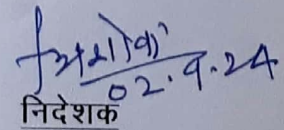 02.9.24
निदेशक